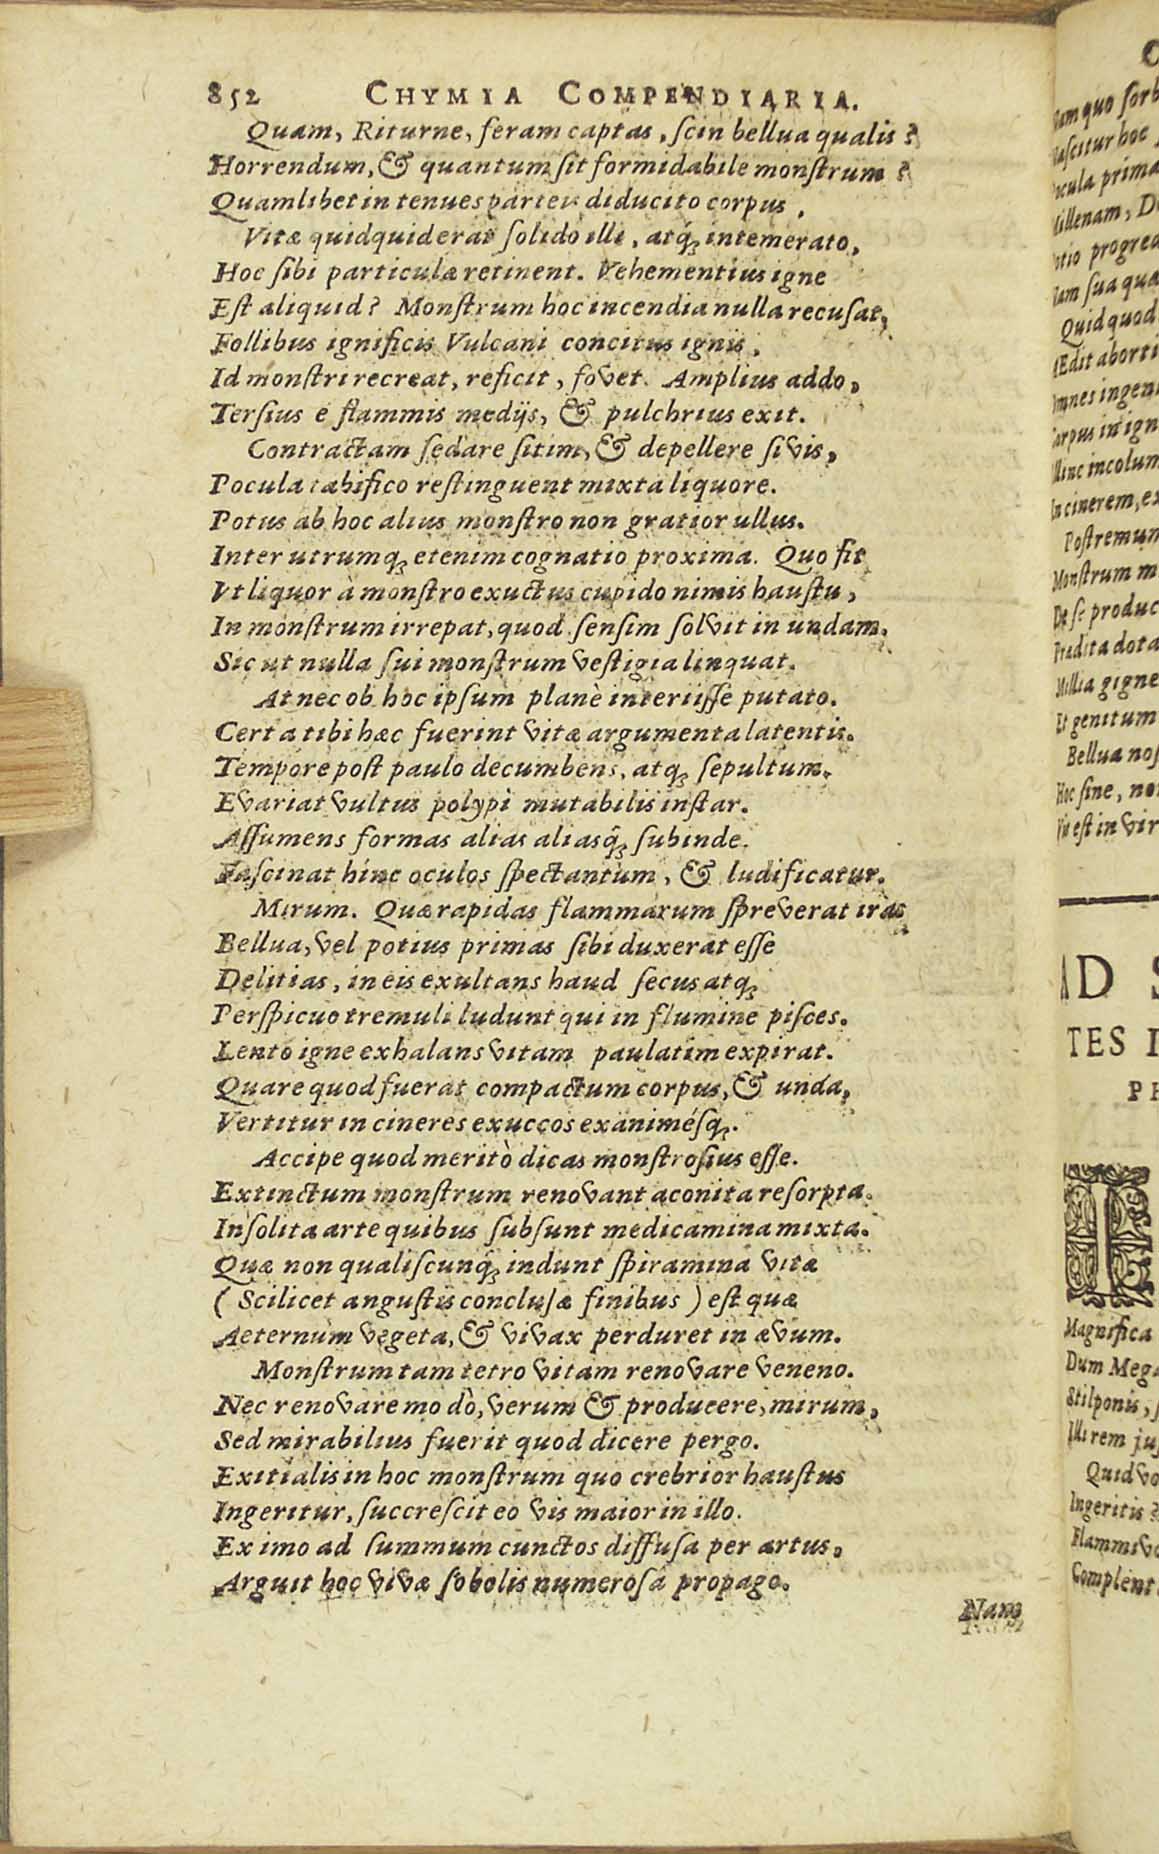 852 CHYMIA COMPENDIARIA.
Quam, Riturne, feram captas, ſcin bellua qualis?
Horrendum, & quantum ſit formidabile monſtrum?
Quamlibet in tenues partes diducito corpus,
Vitæ quidquid erat ſolido illi, atq́; intemerato,
Hoc ſibi particulæ retinent. Vehementius igne
Eſt aliquid? Monſtrum hoc incendia nulla recuſat,
Follibus ignificis Vulcani concitus ignis,
Id monſtri recreat, reficit, fovet. Amplius addo,
Terſius e flammis medijs, & pulchrius exit.
Contractam ſedare ſitim, & depellere ſi vis,
Pocula tabifico reſtinguent mixta liquore.
Potus ab hoc alius monſtro non gratior ullus.
Inter utrumq; etenim cognatio proxima. Quo fit
Vt liquor à monſtro exuctus cupido nimis hauſtu,
In monſtrum irrepat, quod ſenſim ſolvit in undam.
Sic ut nulla ſui monſtrum veſtigia linquat.
At nec ob hoc ipſum planè interiiſſe putato.
Certa tibi hæc fuerint vitæ argumenta latentis.
Tempore poſt paulo decumbens, atq; ſepultum.
Evariat vultus polypi mutabilis inſtar.
Aſſumens formas alias aliasq́; ſubinde.
Faſcinat hinc oculos ſpectantum, & ludificatur.
Mirum. Quæ rapidas flammarum ſpreverat iras
Bellua, vel potius primas ſibi duxerat eſſe
Delitias, in eis exultans haud ſecus atq;
Perſpicuo tremuli ludunt qui in flumine piſces.
Lento igne exhalans vitam paulatim expirat.
Quare quod fuerat compactum corpus, & unda,
Vertitur in cineres exuccos exanimésq;.
Accipe quod meritò dicas monſtroſius eſſe.
Extinctum monſtrum renovant aconita reſorpta.
Inſolita arte quibus ſubſunt medicamina mixta.
Quæ non qualiſcunq́; indunt ſpiramina vitæ
(Scilicet anguſtis concluſæ finibus) eſt quæ
Aeternùm vegeta, & vivax perduret in ævum.
Monſtrum tam tetro vitam renovare veneno.
Nec renovare modò, verum & producere, mirum,
Sed mirabilius fuerit quod dicere pergo.
Exitialis in hoc monſtrum quo crebrior hauſtus
Ingeritur, ſuccreſcit eo vis maior in illo.
Ex imo ad ſummum cunctos diffuſa per artus.
Arguit hoc vivæ ſobolis numeroſa propago.
Nam